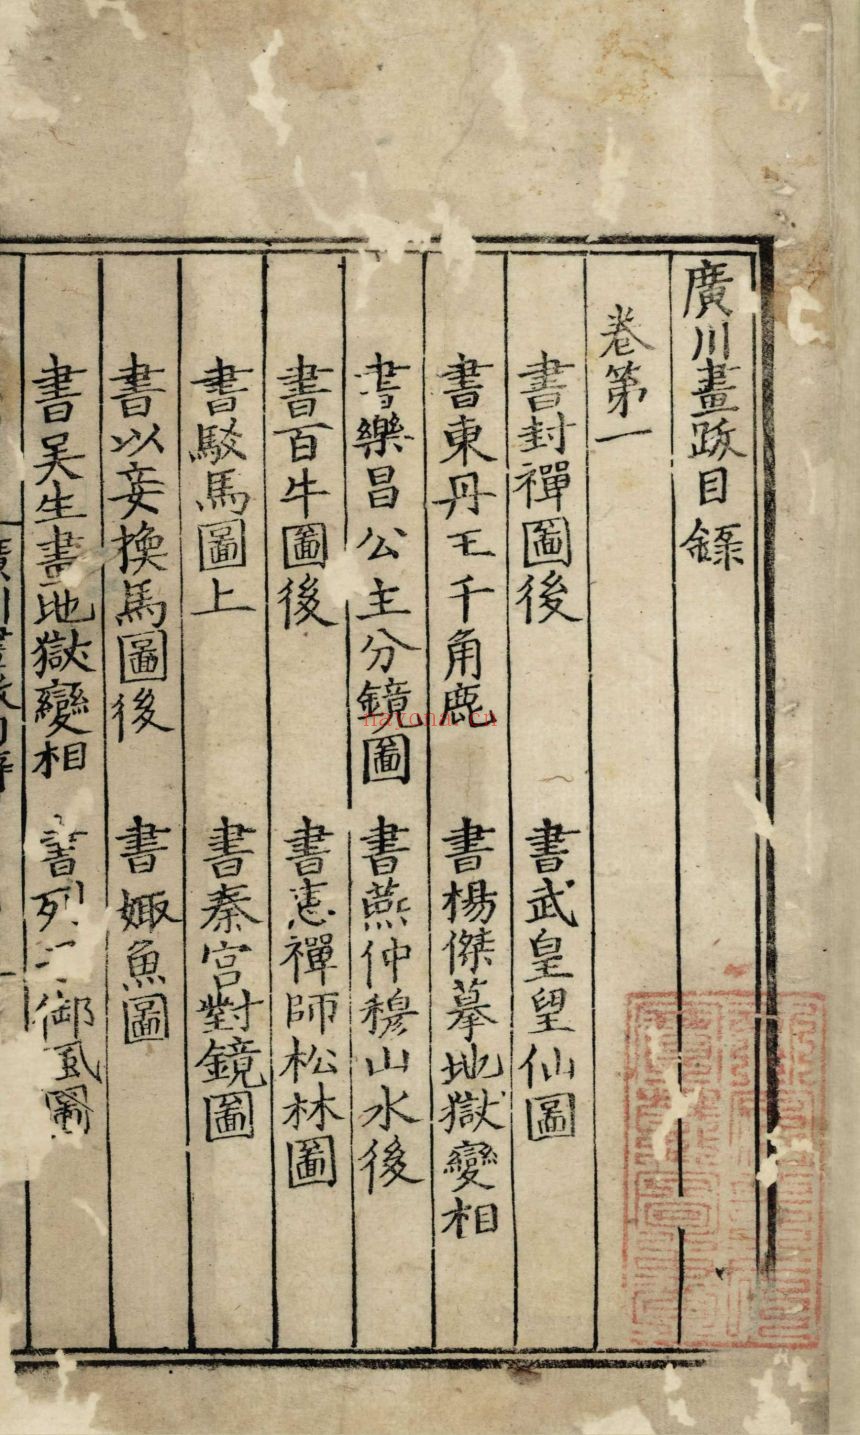 廣川畫跋目錄
卷第一
書封禪圖後 書武皇望仙圖
書東丹王千角鹿 書楊傑摹地獄變相
書樂昌公主分鏡圖 書燕仲穆山水後
書百牛圖後 書惠禪師松林圖
書駁馬圖上 書秦宮對鏡圖
書以妾換馬圖後 書娵魚圖
書吴生畫地獄變相 書列 御風圖
nayona.cn